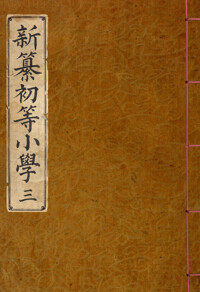 新纂初等小學 三